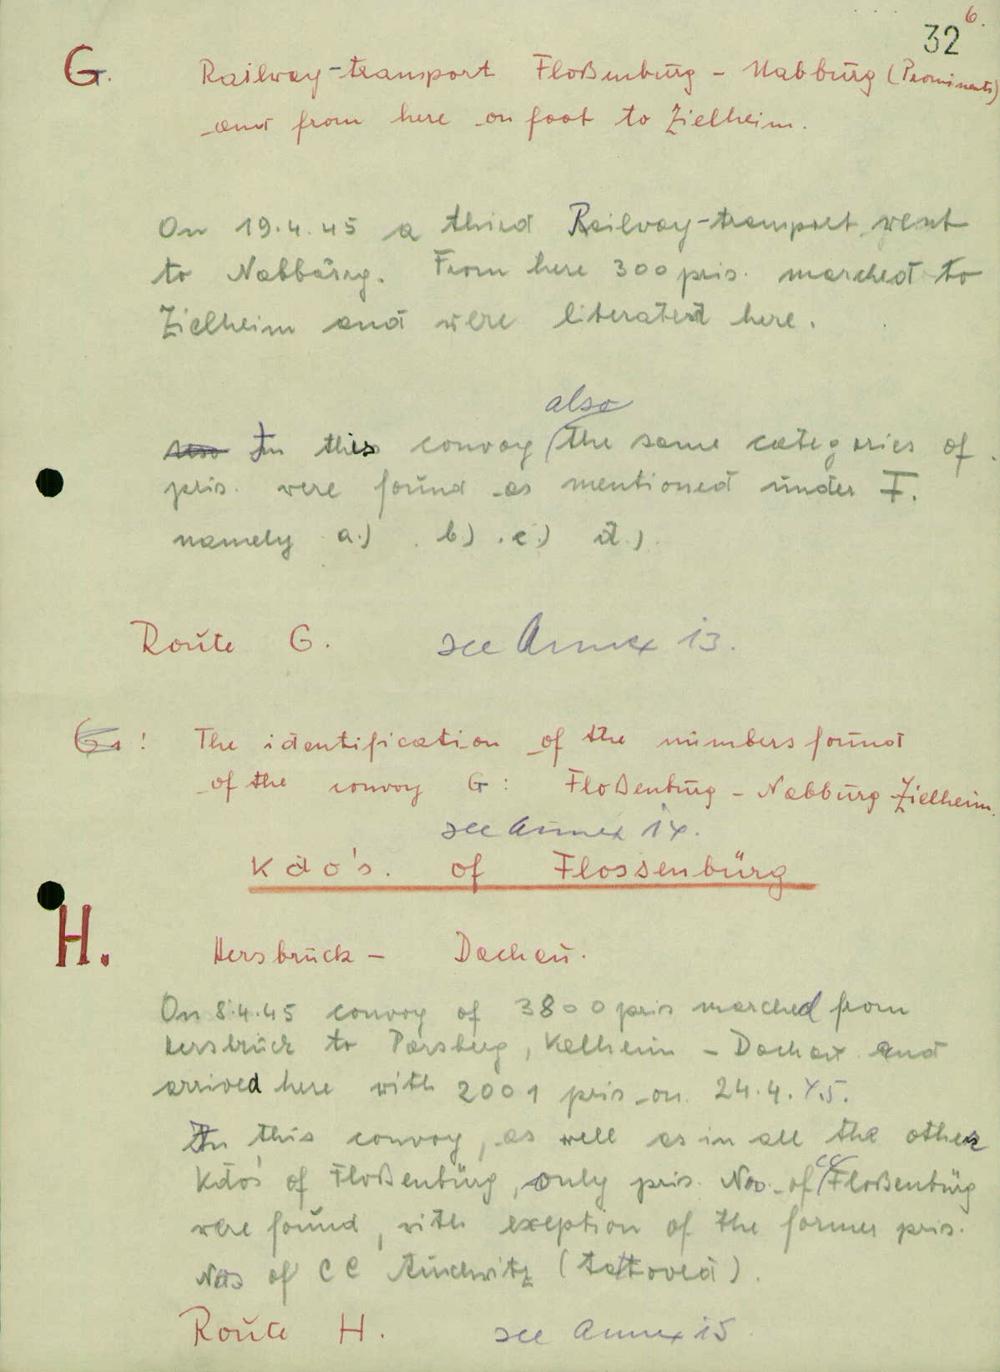 6.
32
G. Railway-transport Floßenbürg - Nabbürg (Prominents)
and from here on foot to Zielheim.
On 19.4.45 a third Railway-transport went
to Nabbürg. From here 300 pris. marched to
Zielheim and were liberated here.
also
In this convoy (the same categories of
pris. were found as mentioned under F.
namely a.) b.) c.) d.)
Route G. see Annex 13.
G1: The identification of the numbers found
of the convoy G: Floßenbürg - Nabbürg - Zielheim.
see Annex 14.
Kdo's. of Flossenbürg
H. Hersbrück - Dachau.
On 8.4.45 convoy of 3800 pris marched from
Hersbrück to Parsberg, Kelheim - Dachau and
arrived here with 2001 pris on 24.4.45.
In this convoy, as well as in all the other
CC
Kdo's of Floßenbürg, only pris. Nos. of (Floßenbürg
were found, with exeption of the former pris.
Nos of CC Auschwitz (tattoved).
Route H. see Annex 15